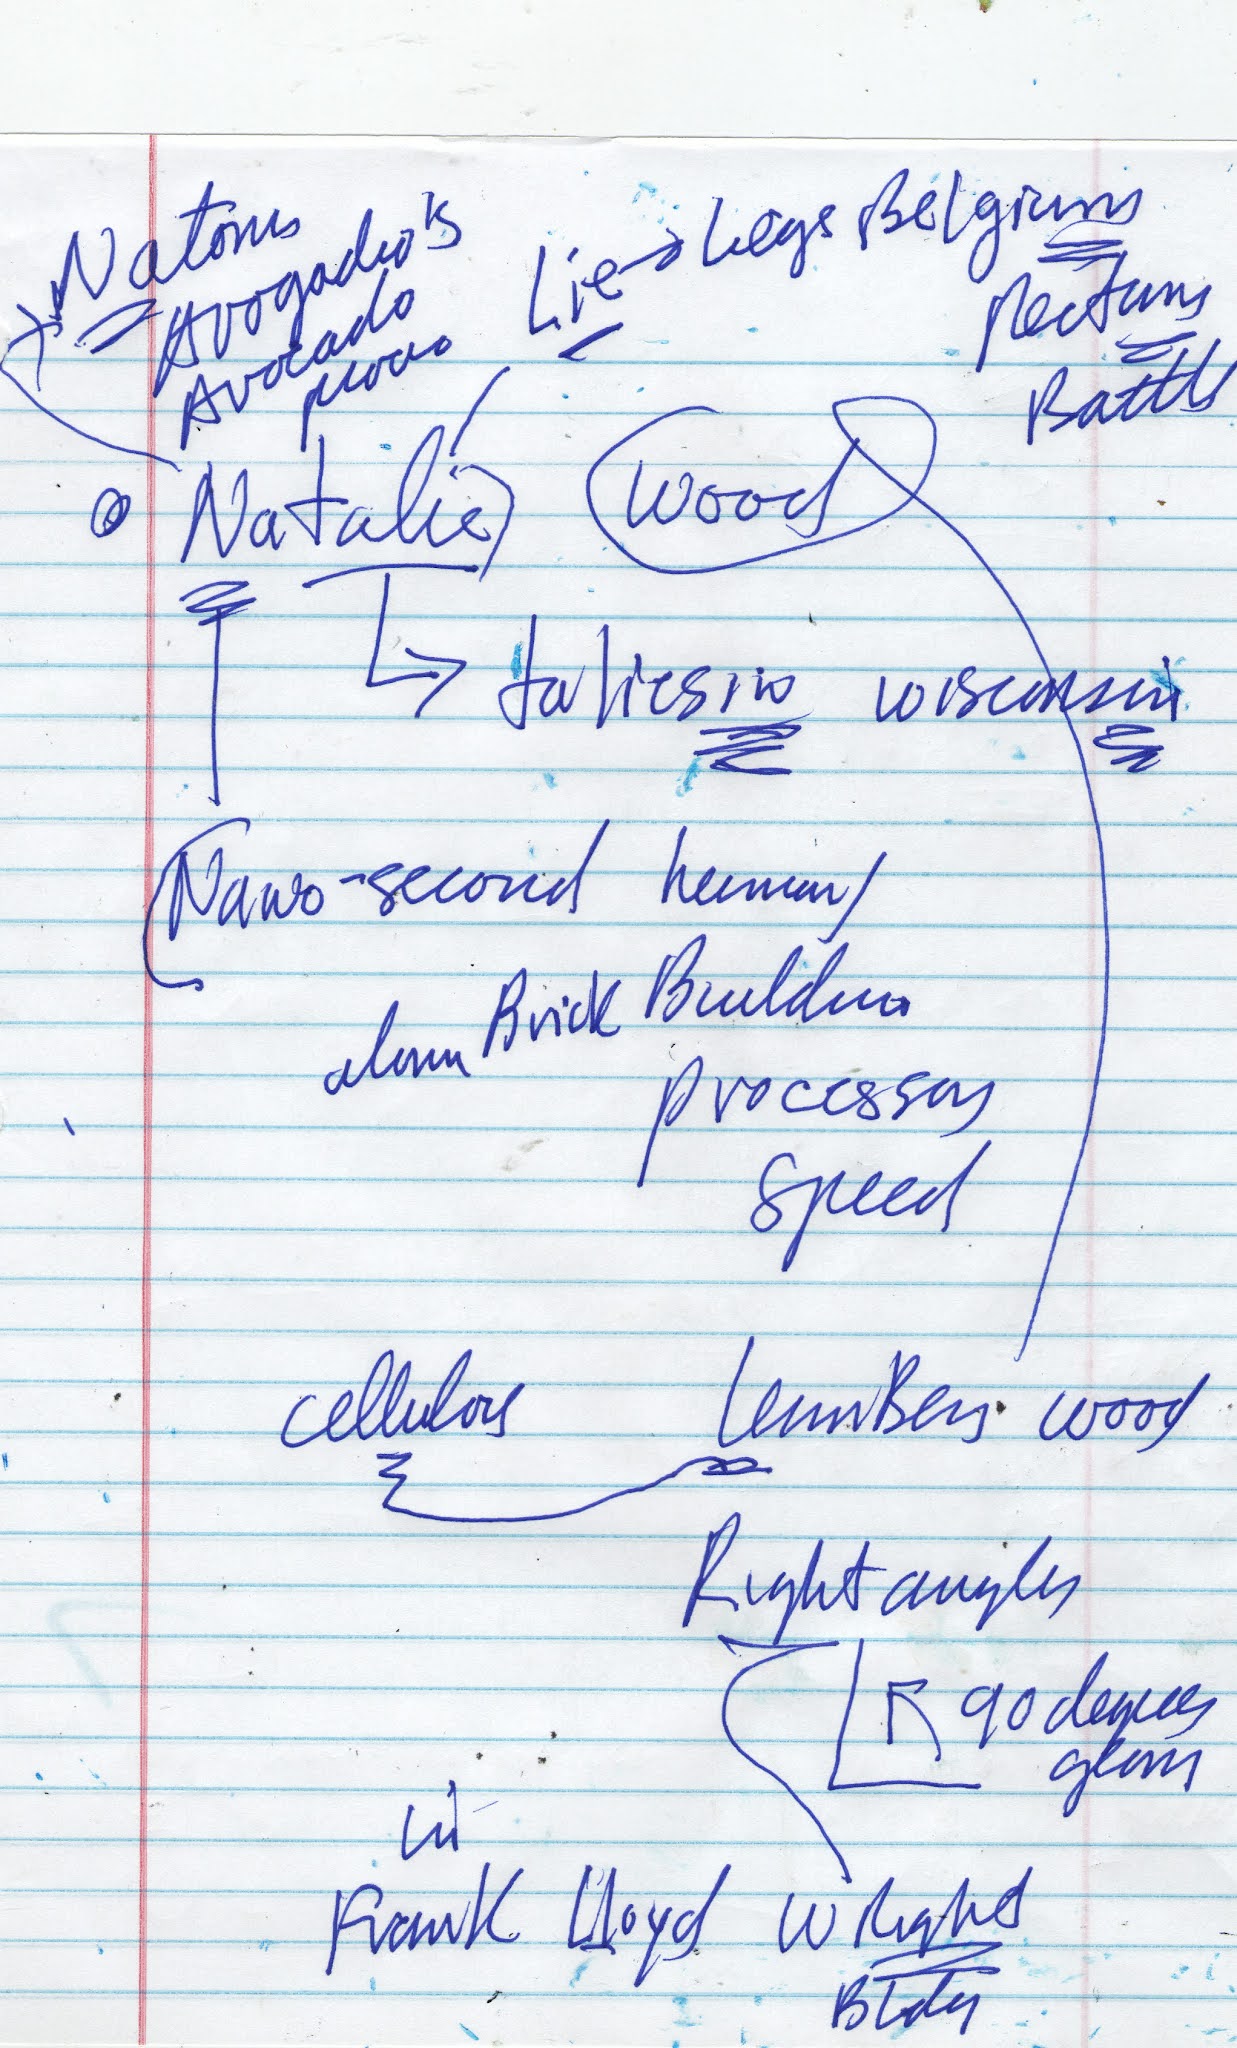 Natoms
Avogadro's
Avocado
Lie → Liege Belgium
Rectum
Battle
Natalie Wood
taliesin wisconsin
Nano-second human
atom Brick Building
processor
speed
cellulose lumBer wood
Right angles
90 degrees
in
Frank Lloyd Wright
Bldg